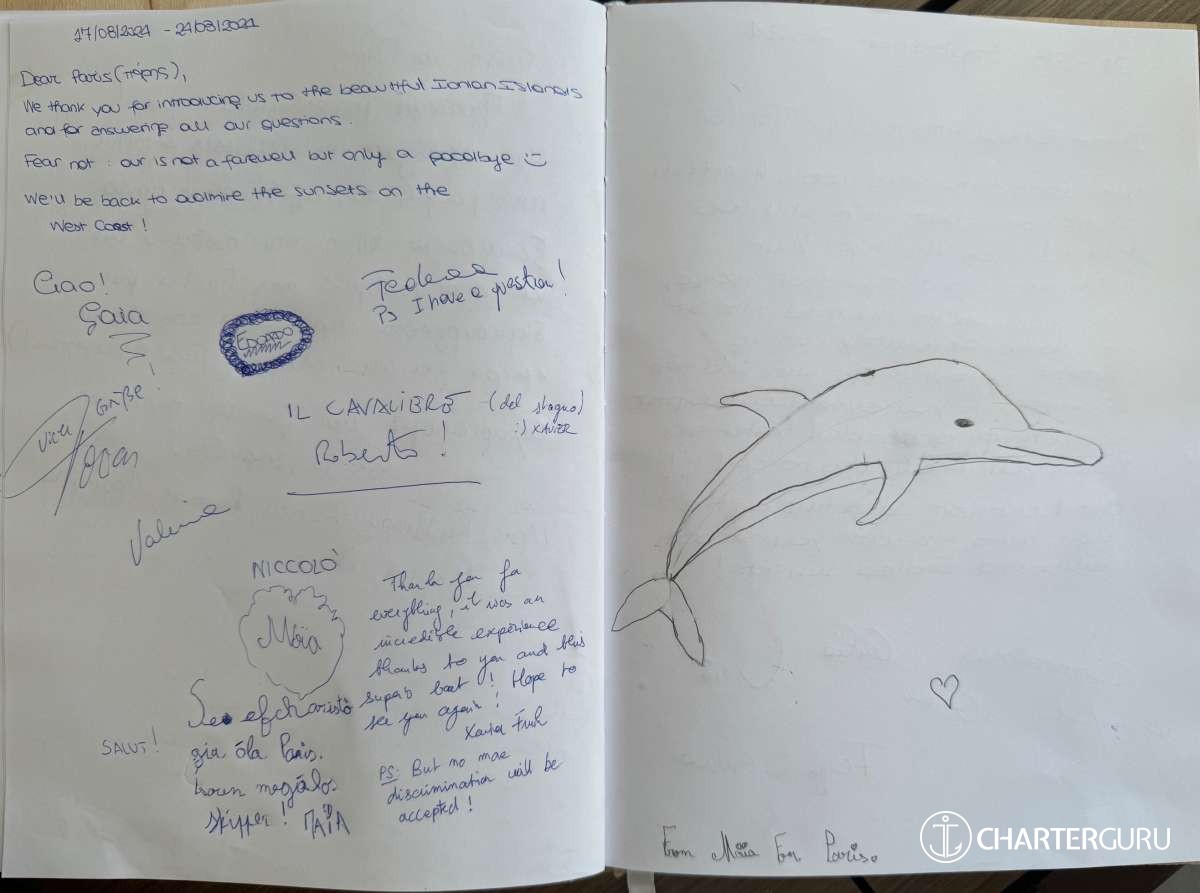 17/08/2021 - 24/08/2021
Dear Paris (Πάρης),
We thank you for introducing us to the beautiful Ionian Islands
and for answering all our questions.
Fear not: our is not a farewell but only a goodbye :)
We'll be back to admire the sunsets on the
West Coast!
Ciao!
Gaia
Ps I have a question!
EDOARDO
IL CAVALIERE (del stagno)
:) XAVIER
Roberto!
NICCOLÒ
Maïa
Thank you for
everything, it was an
incredible experience
thanks to you and this
superb boat! Hope to
see you again!
Xavier
PS: But no more
discrimination will be
accepted!
Se efcharistò
gia óla Paris.
megálos
skipper! ΠAïA
SALUT!
From Maïa For Paris.
CHARTERGURU